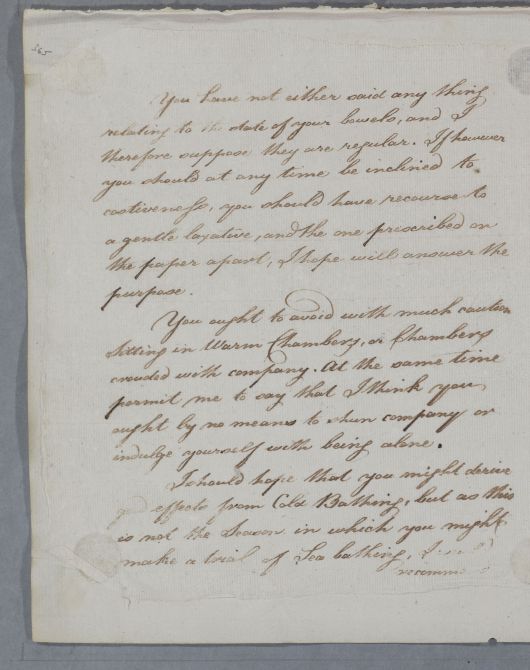 565
You have not either said any thing
relating to the state of your bowels, and I
therefore suppose they are regular. If however
you should at any time be inclined to
costiveness, you should have recourse to
a gentle laxative, and the one prescribed on
the paper apart, I hope will answer the
purpose.
You ought to avoid with much caution
sitting in Warm Chambers, or Chambers
crouded with company. At the same time
permit me to say that I think you
ought by no means to shun company or
indulge yourself with being alone.
I should hope that you might derive
good effects from Cold Bathing, but as this
is not the Season in which you might
make a trial of Sea bathing, I